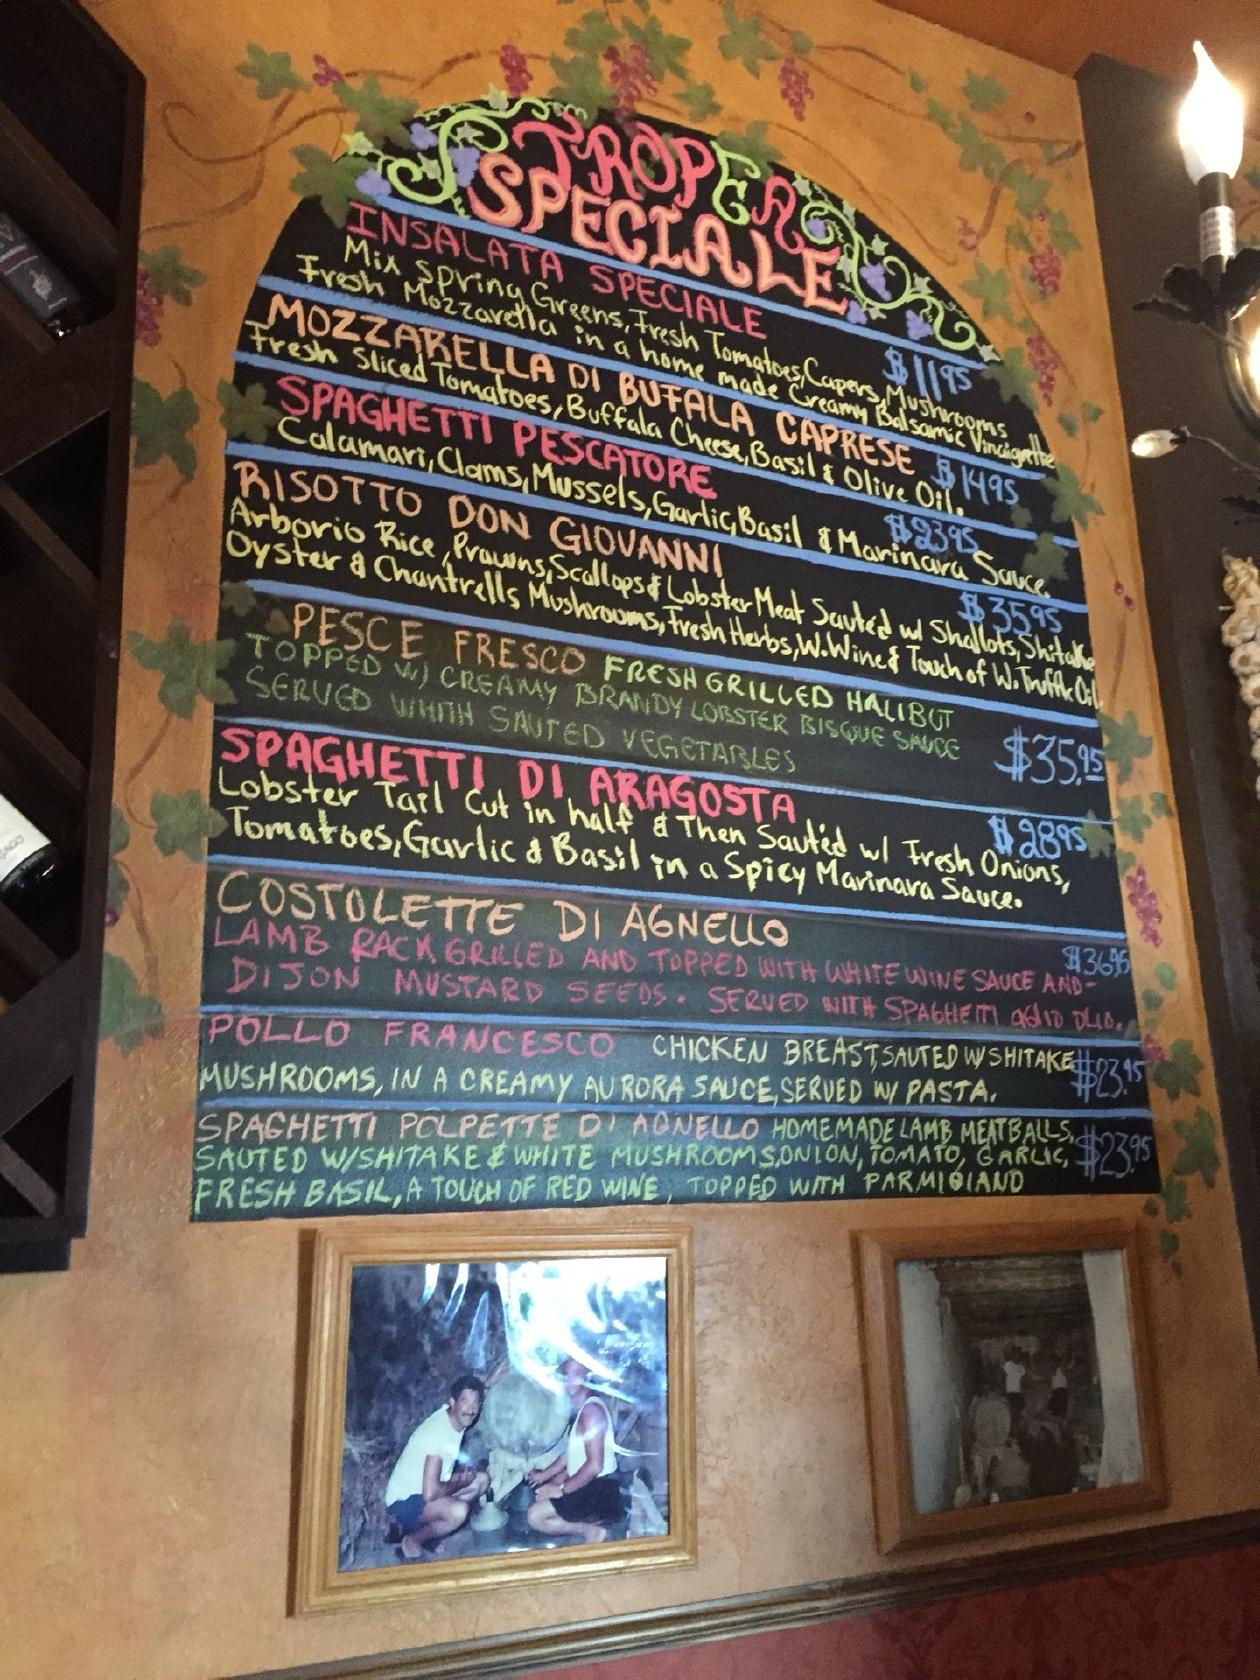 TROPEA
SPECIALE
INSALATA SPECIALE
Mix Spring Greens, Fresh Tomatoes, Capers, Mushrooms
Fresh Mozzarella in a home made Creamy Balsamic Vinaigrette
$1195
MOZZARELLA DI BUFALA CAPRESE
Fresh Sliced Tomatoes, Buffala Cheese, Basil & Olive Oil.
$1495
SPAGHETTI PESCATORE
Calamari, Clams, Mussels, Garlic, Basil & Marinara Sauce.
$2395
RISOTTO DON GIOVANNI
Arborio Rice, Prawns, Scallops & Lobster Meat Sautéd w/ Shallots, Shitake
Oyster & Chantrells Mushrooms, Fresh Herbs, W. Wine & Touch of W. Truffle Oil.
$3595
PESCE FRESCO FRESH GRILLED HALIBUT
TOPPED W/ CREAMY BRANDY LOBSTER BISQUE SAUCE
SERVED WHITH SAUTED VEGETABLES
$35.95
SPAGHETTI DI ARAGOSTA
Lobster Tail Cut in half & Then Sautéd w/ Fresh Onions,
Tomatoes, Garlic & Basil in a Spicy Marinara Sauce.
$2895
COSTOLETTE DI AGNELLO
LAMB RACK GRILLED AND TOPPED WITH WHITE WINE SAUCE AND-
DIJON MUSTARD SEEDS. SERVED WITH SPAGHETTI aglio olio.
$3695
POLLO FRANCESCO CHICKEN BREAST, SAUTED W/SHITAKE
MUSHROOMS, IN A CREAMY AURORA SAUCE, SERVED W/ PASTA.
$23.95
SPAGHETTI POLPETTE DI AGNELLO HOMEMADE LAMB MEATBALLS,
SAUTED W/SHITAKE & WHITE MUSHROOMS, ONION, TOMATO, GARLIC,
FRESH BASIL, A TOUCH OF RED WINE, TOPPED WITH PARMIGIANO
$23.95